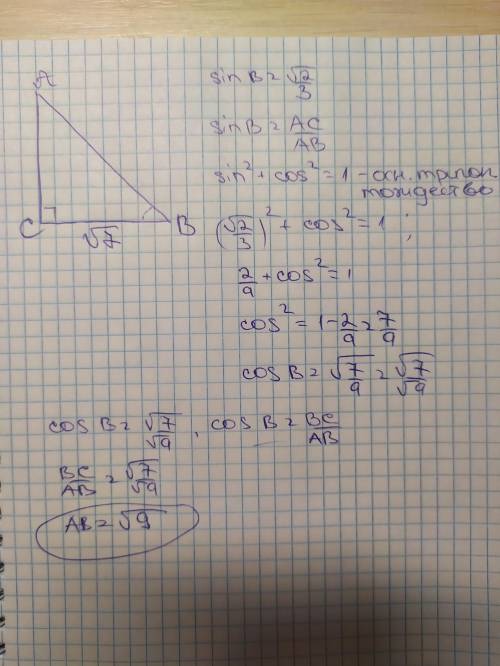 A
C
√7
B
sin B = √2/3
sin B = AC/AB
sin² + cos² = 1 - осн. тригон.
тождество
(√2/3)² + cos² = 1 ;
2/9 + cos² = 1
cos² = 1 - 2/9 = 7/9
cos B = √7/9 = √7/√9
cos B = √7/√9 , cos B = BC/AB
BC/AB = √7/√9
AB = √9